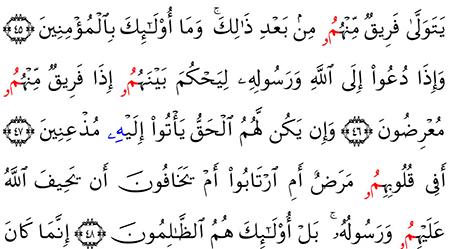 يَتَوَلَّىٰ فَرِيقٌ مِّنْهُمُۥ مِنۢ بَعْدِ ذَٰلِكَۚ وَمَآ أُوْلَٰٓئِكَ بِٱلْمُؤْمِنِينَ ۝٤٥
وَإِذَا دُعُوٓاْ إِلَى ٱللَّهِ وَرَسُولِهِۦ لِيَحْكُمَ بَيْنَهُمُۥٓ إِذَا فَرِيقٌ مِّنْهُمُۥ
مُعْرِضُونَ ۝٤٦ وَإِن يَكُن لَّهُمُ ٱلْحَقُّ يَأْتُوٓاْ إِلَيْهِۦ مُذْعِنِينَ ۝٤٧
أَفِي قُلُوبِهِمُۥ مَرَضٌ أَمِ ٱرْتَابُوٓاْ أَمْ يَخَافُونَ أَن يَحِيفَ ٱللَّهُ
عَلَيْهِمُۥ وَرَسُولُهُۥۚ بَلْ أُوْلَٰٓئِكَ هُمُ ٱلظَّٰلِمُونَ ۝٤٨ إِنَّمَا كَانَ